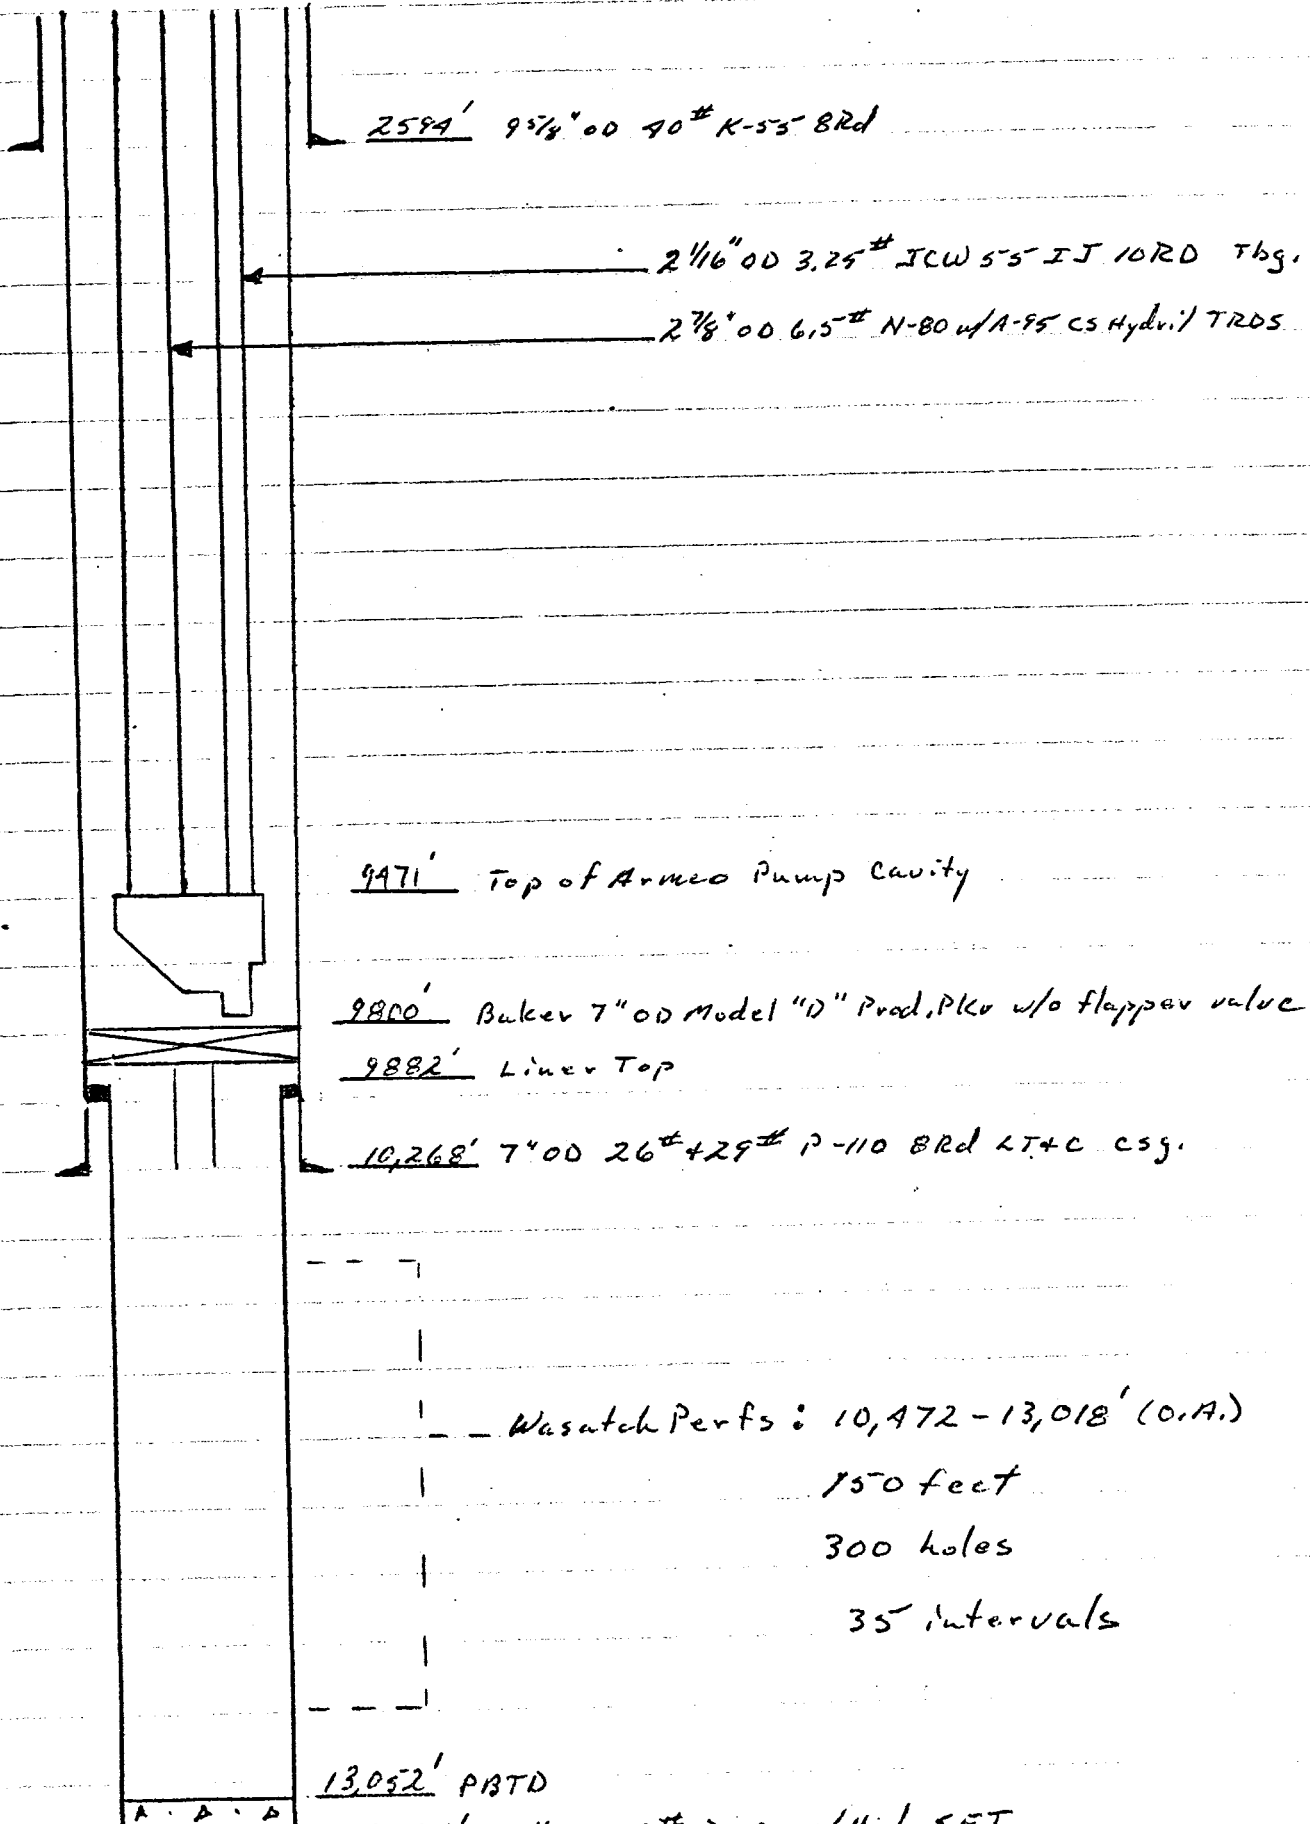 2594' 9 5/8" OD 40# K-55 8Rd
2 1/16" OD 3.25# JCW 55 IJ 10RD Tbg.
2 7/8" OD 6.5# N-80 w/A-95 CS Hydril TRDS
9471' Top of Armco Pump Cavity
9800' Baker 7" OD Model "D" Prod. Pkr w/o flapper valve
9882' Liner Top
10,268' 7" OD 26# + 29# P-110 8Rd LT+C csg.
Wasatch Perfs: 10,472-13,018' (O.A.)
150 feet
300 holes
35 intervals
13,052' PBTD
SET